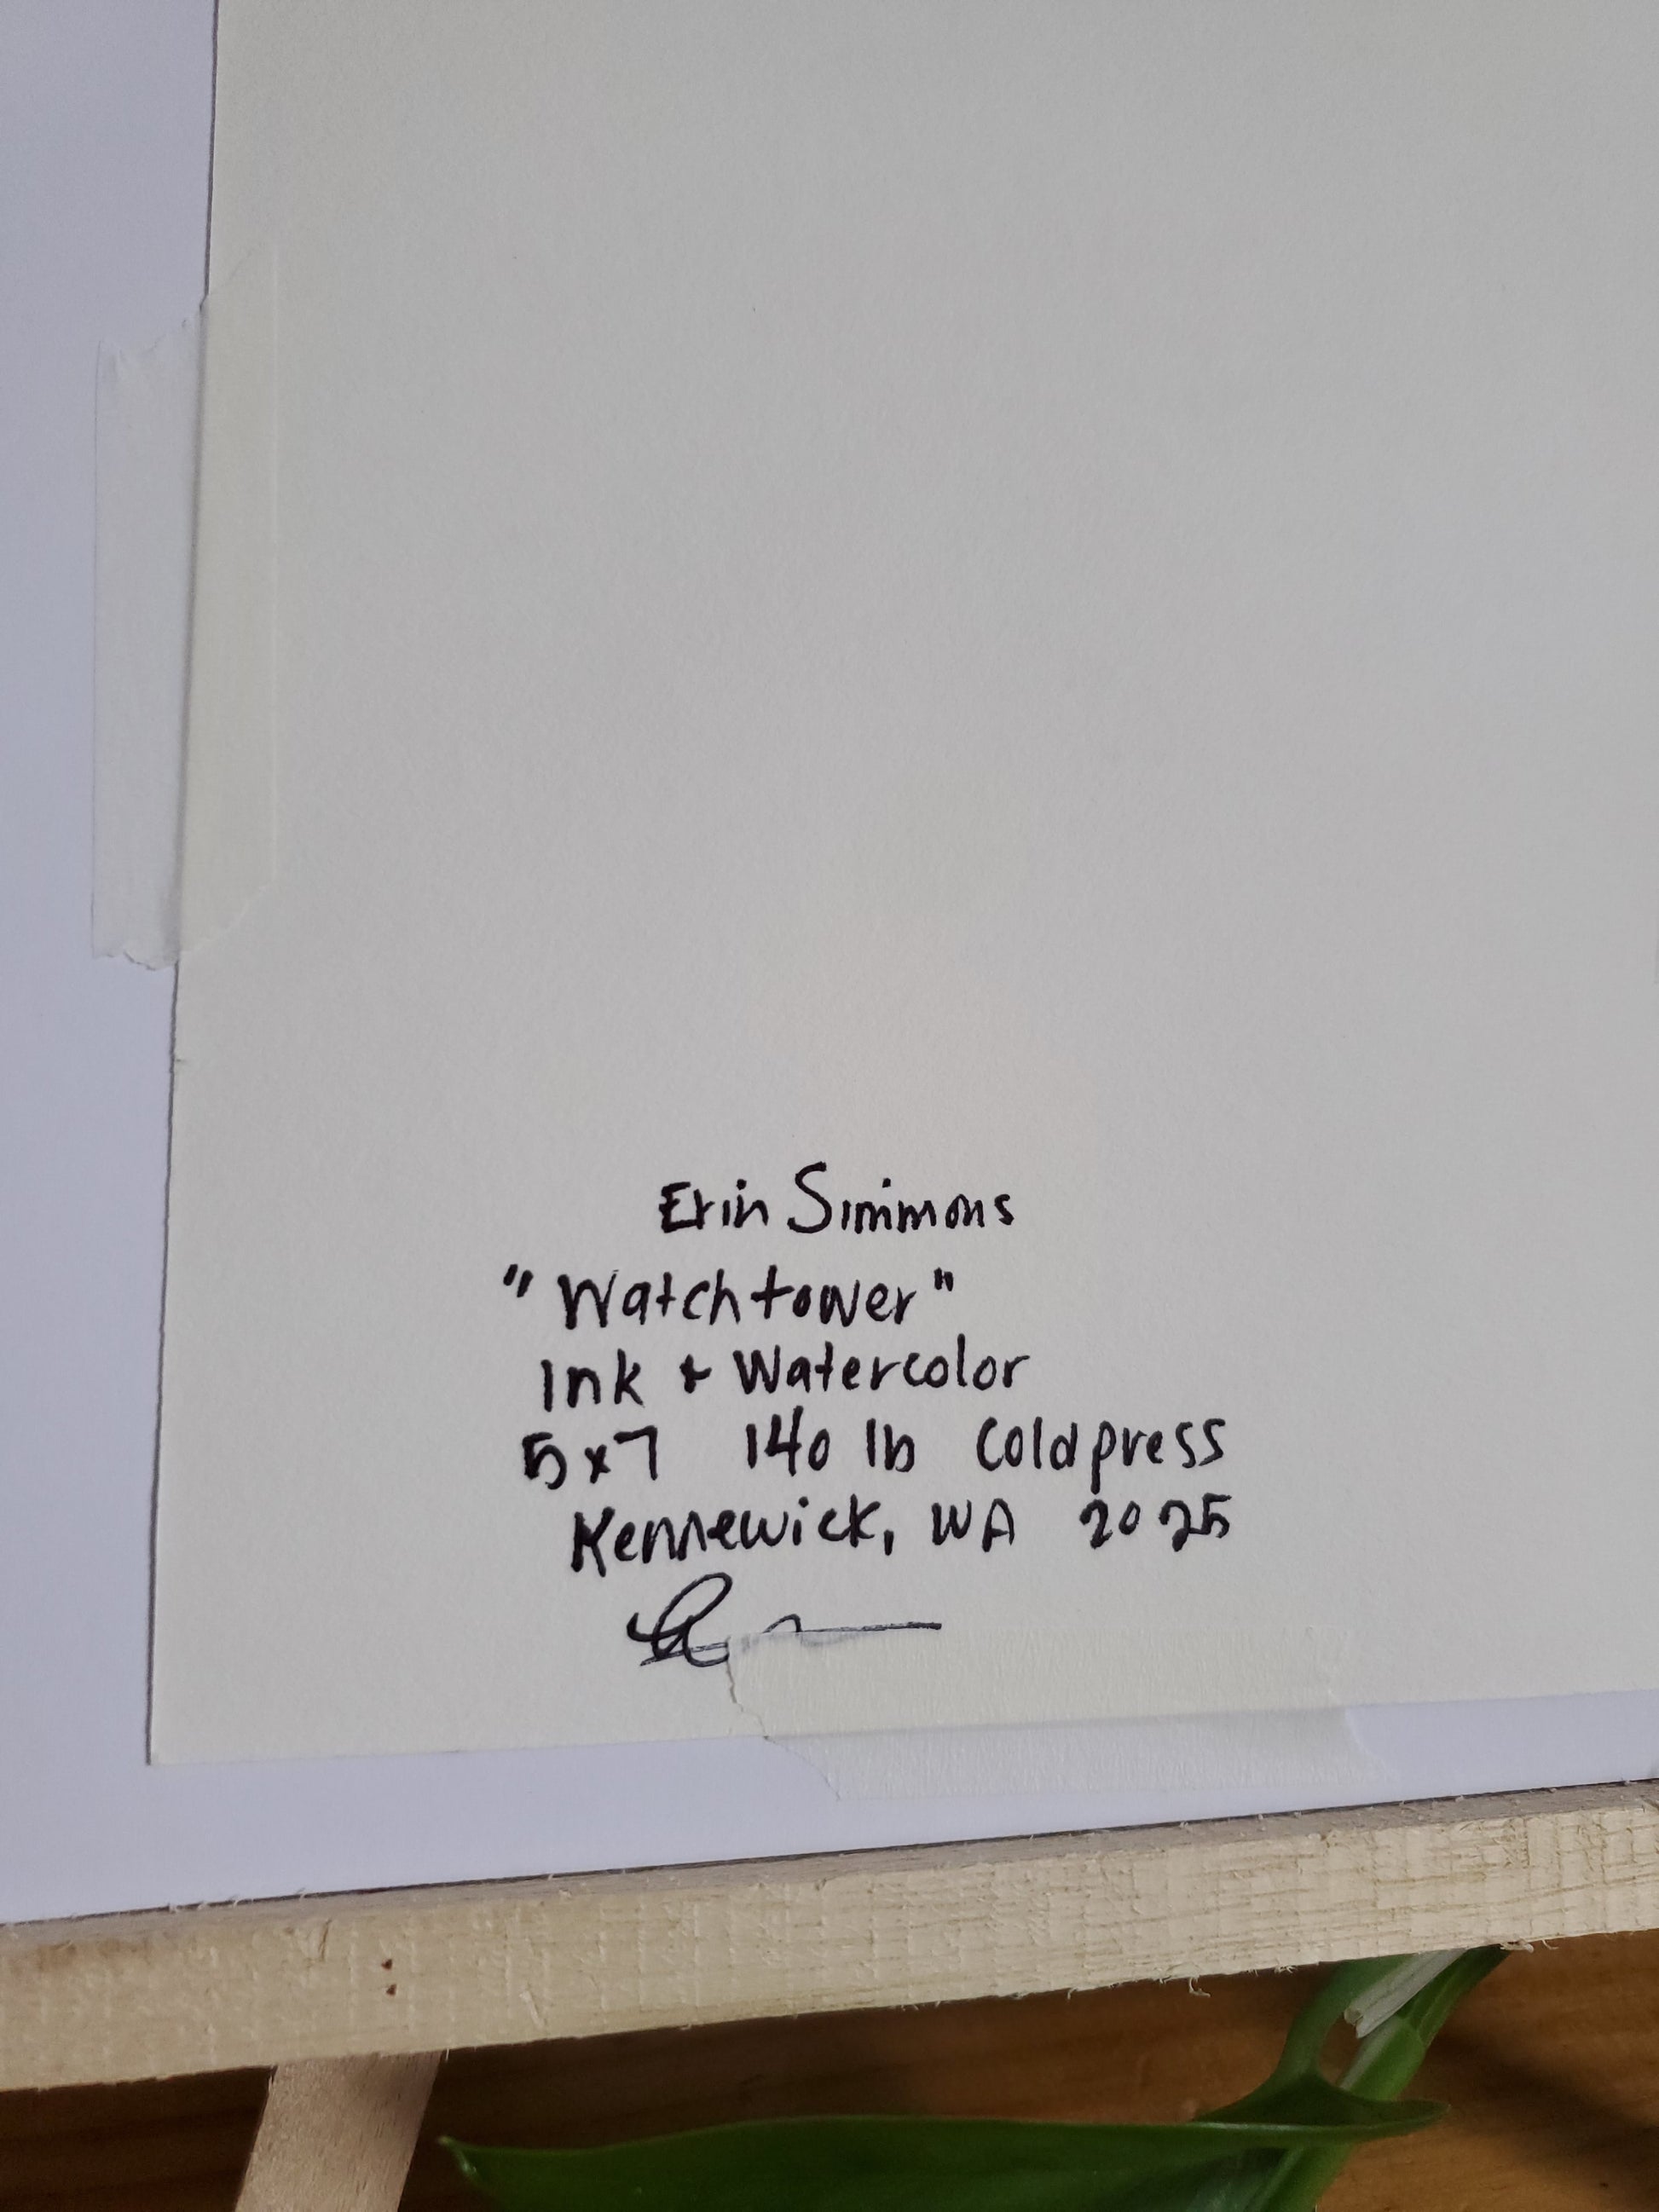 Erin Simmons
"Watchtower"
Ink + Watercolor
5x7 140 lb Coldpress
Kennewick, WA 2025